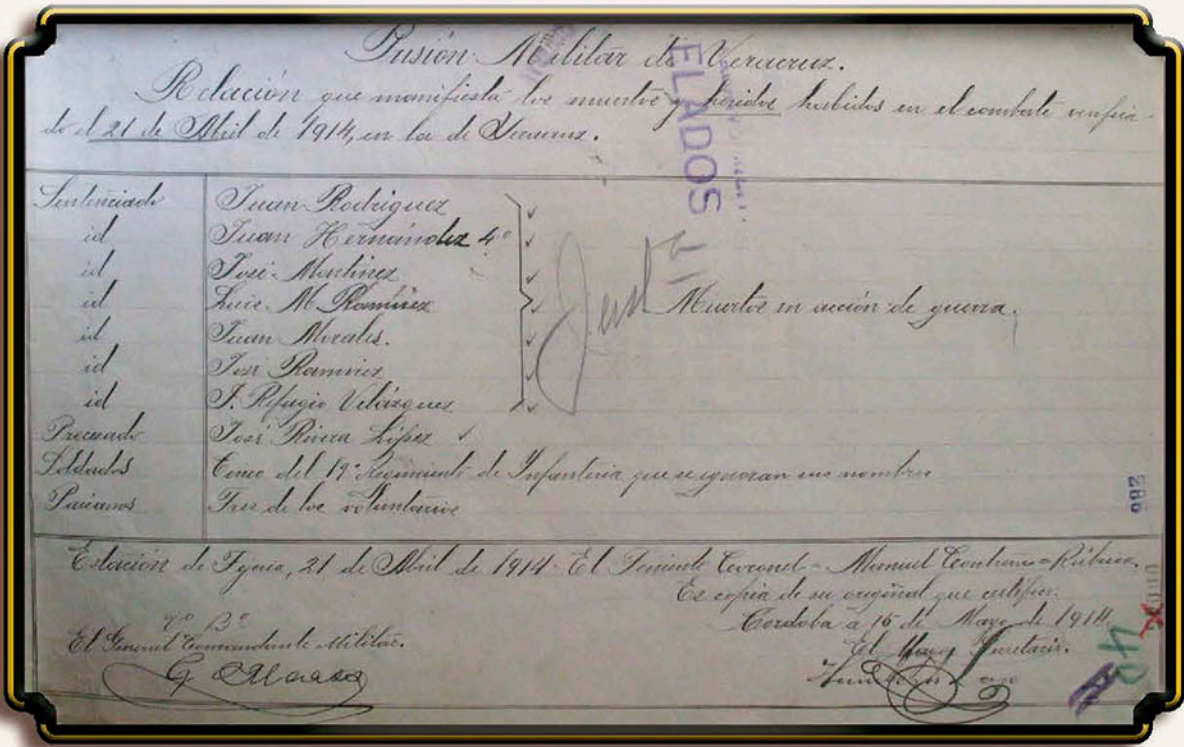 Prisión Militar de Veracruz.
Relación que manifiesta los muertos y heridos habidos en el combate verifica-
do el 21 de Abril de 1914, en la de Veracruz.
ELADOS
Sentenciado Juan Rodríguez
id Juan Hernández 4º
id José Martínez
id Luis M. Ramírez
id Juan Morales.
id José Ramírez
id J. Refugio Velázquez
Muertos en acción de guerra.
Procesado José Rivera López
Soldados Cinco del 19º Regimiento de Infantería que se ignoran sus nombres
Paisanos Tres de los voluntarios
282
Estación de Tejería, 21 de Abril de 1914. El Teniente Coronel - Manuel Contreras =Rúbrica.
Es copia de su original que certifico.
Córdoba a 15 de Mayo de 1914.
Vº Bº
El General Comandante Militar.
El Mayor Secretario.
G
40